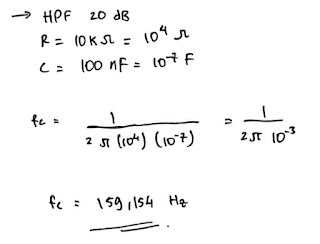 → HPF 20 dB
R = 10 K Ω = 10⁴ Ω
C = 100 nF = 10⁻⁷ F
fc = 1 / 2 π (10⁴) (10⁻⁷) = 1 / 2π 10⁻³
fc = 159,154 Hz